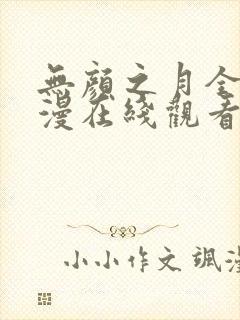 無顔之月全
漫在綫觀看
小小作文 颯漫